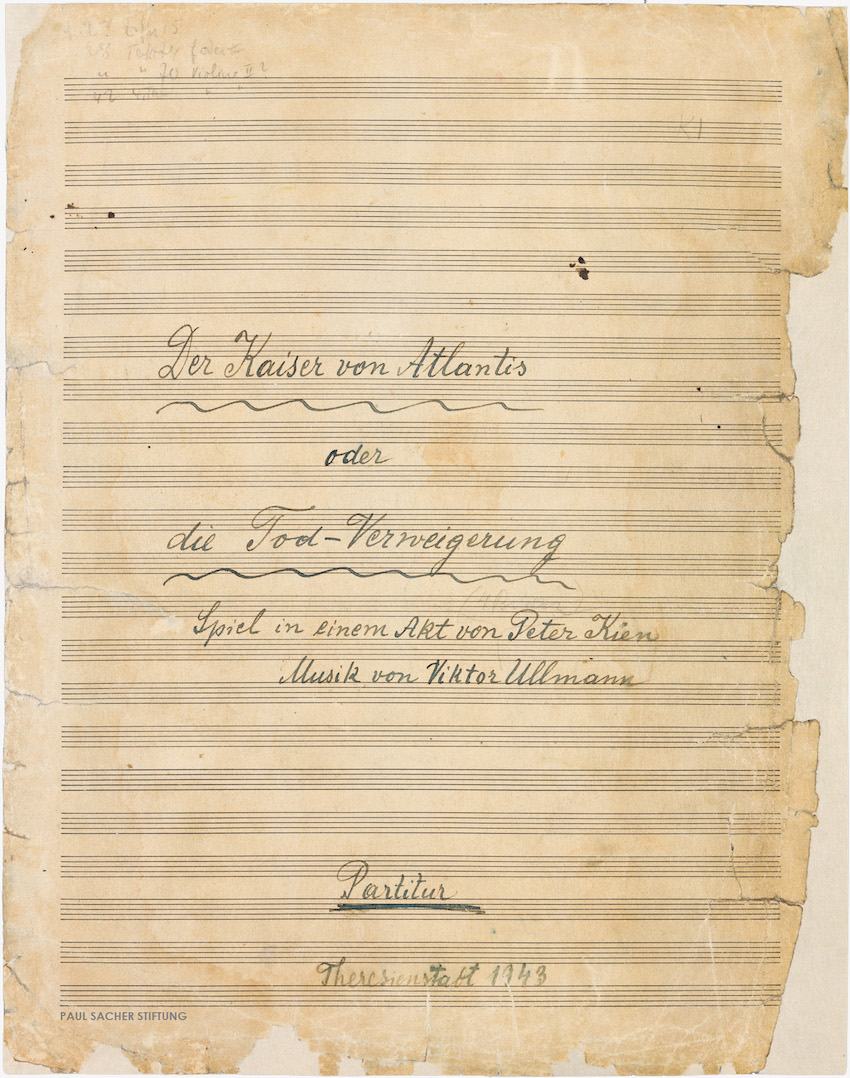 Der Kaiser von Atlantis
oder
die Tod-Verweigerung
Spiel in einem Akt von Peter Kien
Musik von Viktor Ullmann
Partitur
Theresienstadt 1943
PAUL SACHER STIFTUNG